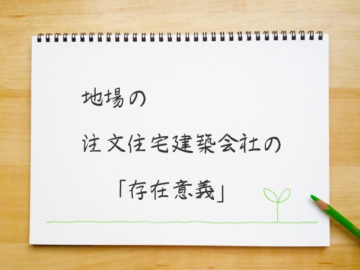 地場の
注文住宅建築会社の
「存在意義」